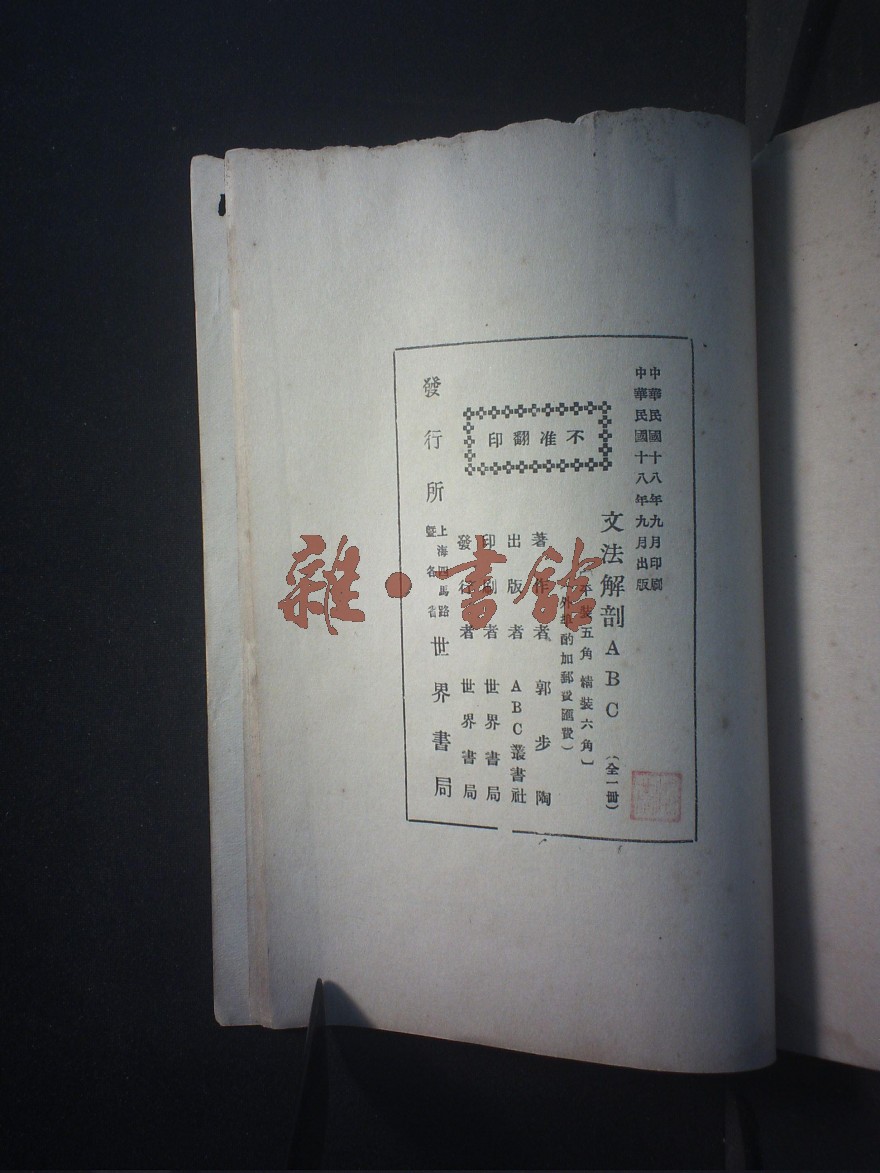 中華民國十八年九月印刷
中華民國十八年九月出版
文法解剖ABC（全一冊）
裝五角 精裝六角〕
外埠酌加郵費匯費）
著作者 郭步陶
出版者 ABC叢書社
印刷者 世界書局
發行者 世界書局
不准翻印
發行所 上海四馬路暨各省 世界書局
雜·書館